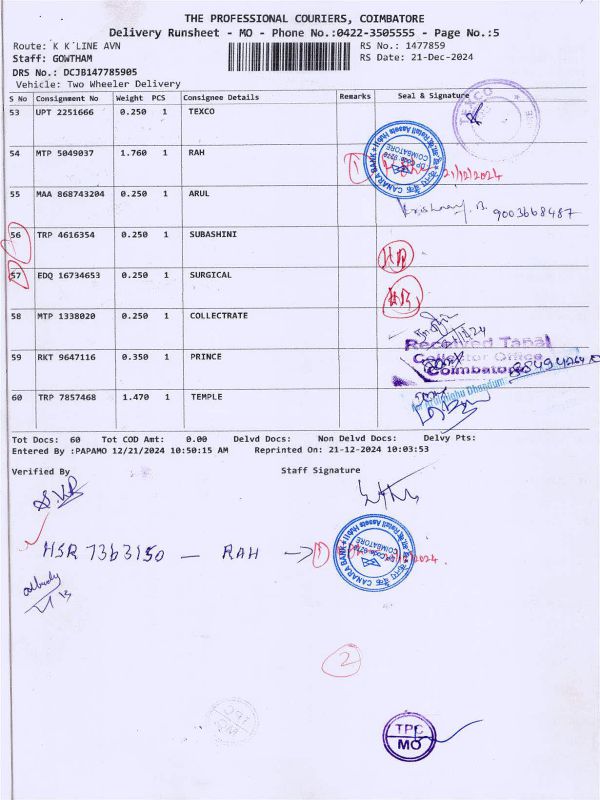 THE PROFESSIONAL COURIERS, COIMBATORE
Delivery Runsheet - MO - Phone No.:0422-3505555 - Page No.:5
Route: K K LINE AVN RS No.: 1477859
Staff: GOWTHAM RS Date: 21-Dec-2024
DRS No.: DCJB147785905
Vehicle: Two Wheeler Delivery
S No Consignment No Weight PCS Consignee Details Remarks Seal & Signature
53 UPT 2251666 0.250 1 TEXCO
TEXCO
54 MTP 5049037 1.760 1 RAH
1 21/12/2024
CANARA BANK
COIMBATORE
55 MAA 868743204 0.250 1 ARUL
Krishnan. B. 9003668487
56 TRP 4616354 0.250 1 SUBASHINI
57 EDQ 16734653 0.250 1 SURGICAL
58 MTP 1338020 0.250 1 COLLECTRATE
Received Tapal
Collector Office
Coimbatore
59 RKT 9647116 0.350 1 PRINCE
60 TRP 7857468 1.470 1 TEMPLE
Tot Docs: 60 Tot COD Amt: 0.00 Delvd Docs: Non Delvd Docs: Delvy Pts:
Entered By :PAPAMO 12/21/2024 10:50:15 AM Reprinted On: 21-12-2024 10:03:53
Verified By Staff Signature
HSR 7363150 — RAH → 1
CANARA BANK
COIMBATORE
2
TPC
MO